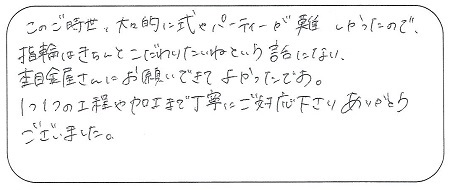 このご時世、大々的に式やパーティーが難しかったので、
指輪はきちんとこだわりたいねという話になり、
杢目金屋さんにお願いできてよかったです。
1つ1つの工程や加工まで丁寧にご対応下さりありがとう
ございました。